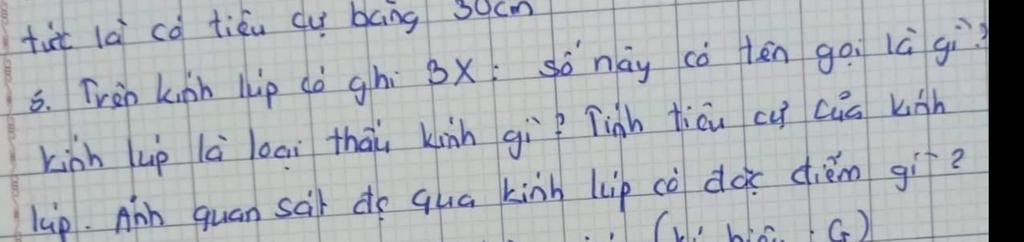 tức là có tiêu cự bằng 30cm
5. Trên kính lúp có ghi 3X: số này có tên gọi là gì?
Kính lúp là loại thấu kính gì? Tính tiêu cự của kính
lúp. Ảnh quan sát đc qua kính lúp có đặc điểm gì?
(kí hiệu: G)